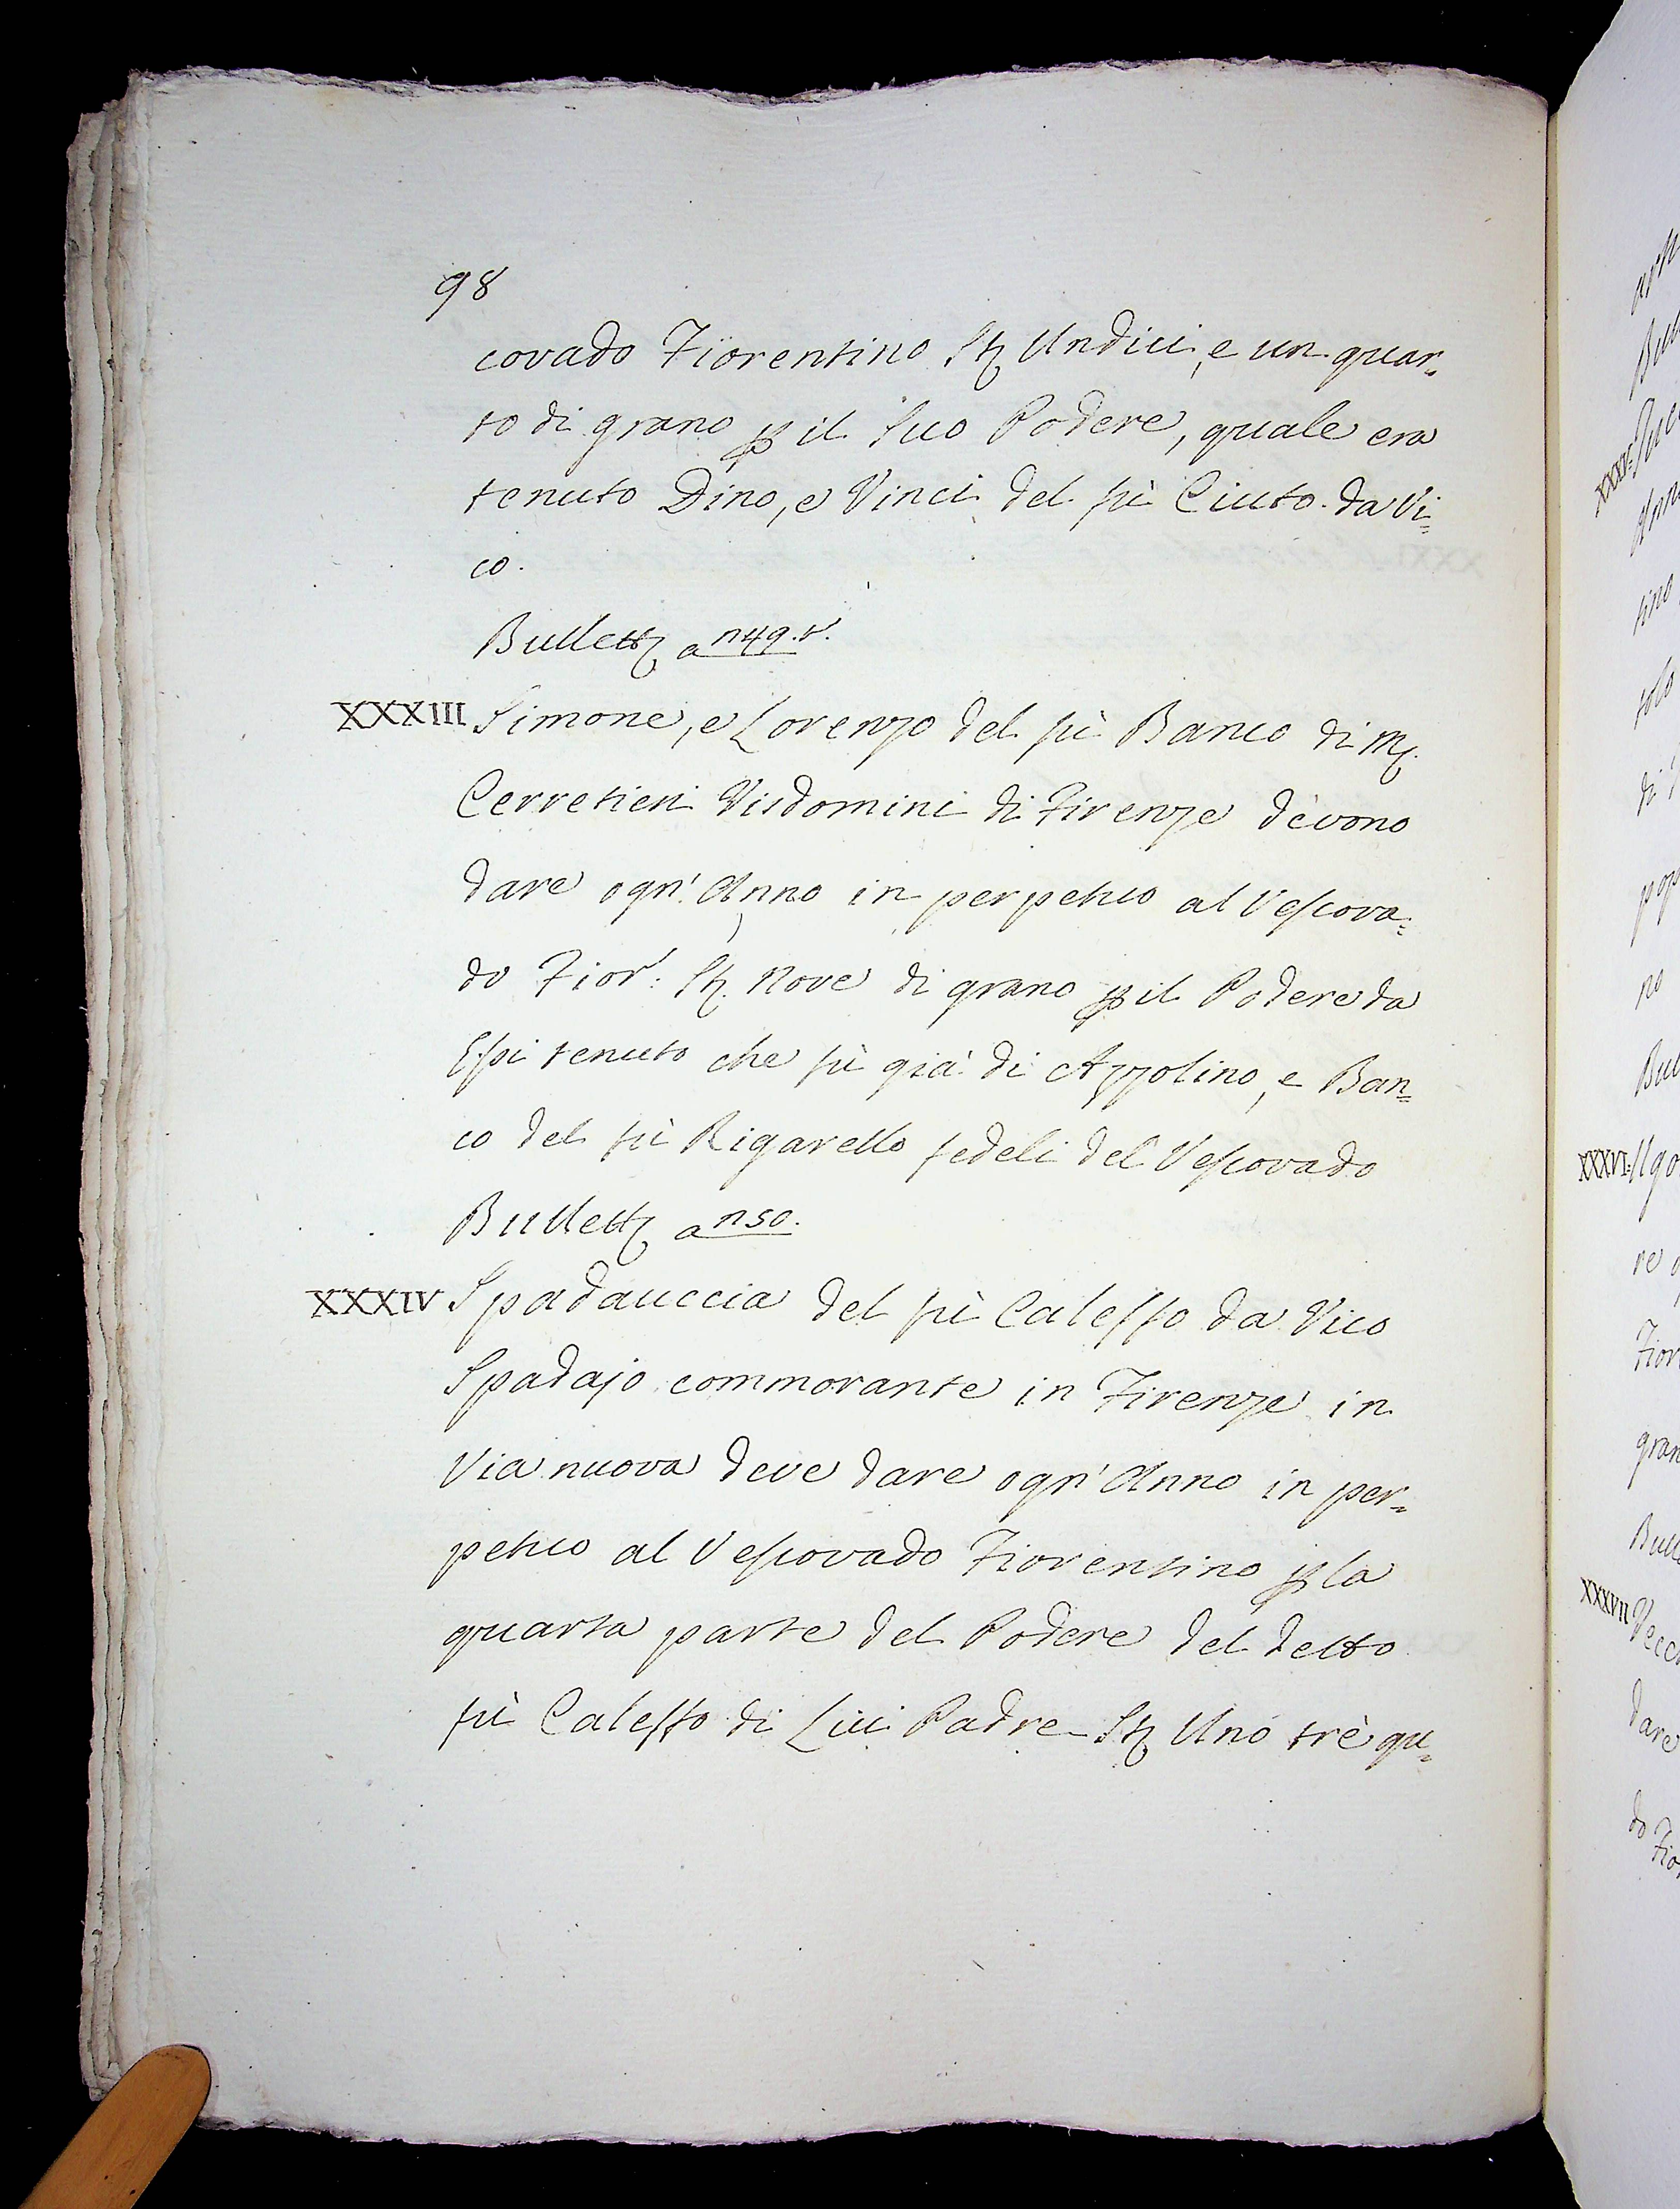 98
covado Fiorentino St. Undici, e un quar=
to di grano p il suo Podere, quale era
tenuto Dino, e Vinci del fù Ciuto da Vi=
co.
Bullett. a n 49. v.
XXXIII Simone, e Lorenzo del fù Banco di M.
Cerretieri Visdomini di Firenze devono
dare ogn' Anno in perpetuo al Vescova=
do Fior: St. Nove di grano p il Podere da
Essi tenuto che fù già di Azzolino, e Ban=
co del fù Rigarello fedeli del Vescovado
Bullett. a n 50.
XXXIV Spadauccia del fù Caleffo da Vico
Spadajo commorante in Firenze in
Via nuova deve dare ogn' Anno in per=
petuo al Vescovado Fiorentino p la
quarta parte del Podere del detto
fù Caleffo di Lui Padre St. Uno trè qu=
XXXV.
XXXVI. Ugo
re
Fior
gran
Bull
XXXVII Vecc
dare
do Fio